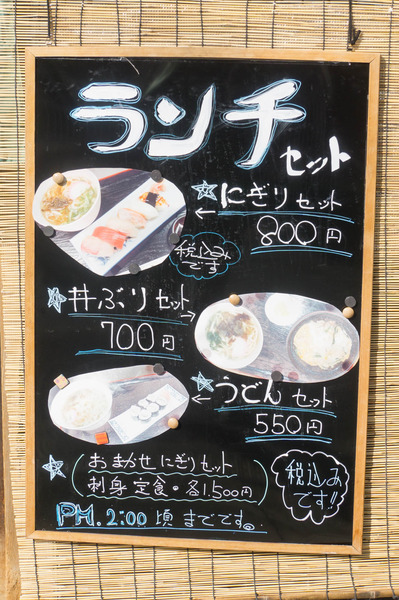 ランチ
セット
にぎりセット
800円
税込み
です
丼ぶりセット
700円
うどんセット
550円
おまかせにぎりセット
刺身定食・各1,500円
税込み
です!!
PM.2:00頃までです。